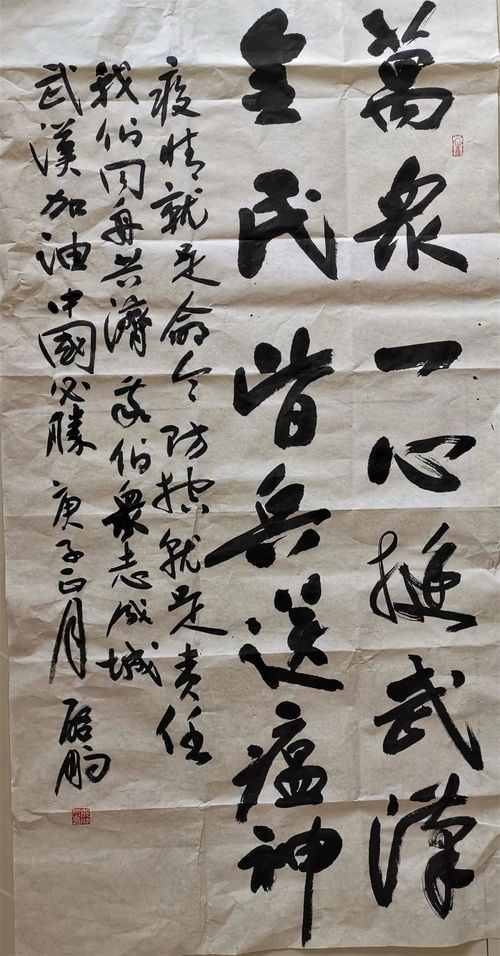 萬衆一心挺武漢
全民皆兵送瘟神
疫情就是命令防控就是责任
我们同舟共濟 我们衆志成城
武漢加油中國必勝 庚子正月 啟鹏